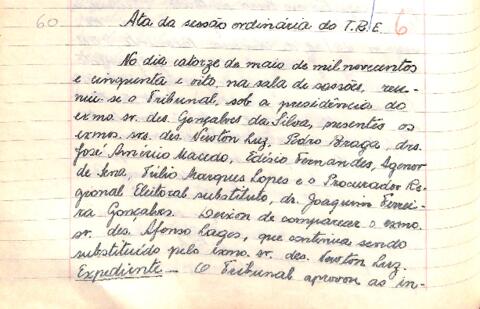 60 Ata da sessão ordinária do T.R.E. 6
No dia catorze de maio de mil novecentos
e cinquenta e oito, na sala de sessões, reu-
niu-se o Tribunal, sob a presidência do
exmo sr. des. Gonçalves da Silva, presentes os
exmos. srs. des. Newton Luz, Pedro Braga, drs.
José Américo Macedo, Edísio Fernandes, Agenor
de Sena, Túlio Marques Lopes e o Procurador Re-
gional Eleitoral substituto, dr. Joaquim Ferrei-
ra Gonçalves. Deixou de comparecer o exmo.
sr. des. Afonso Lages, que continua sendo
substituído pelo exmo. sr. des. Newton Luz.
Expediente — O Tribunal aprovou as in-